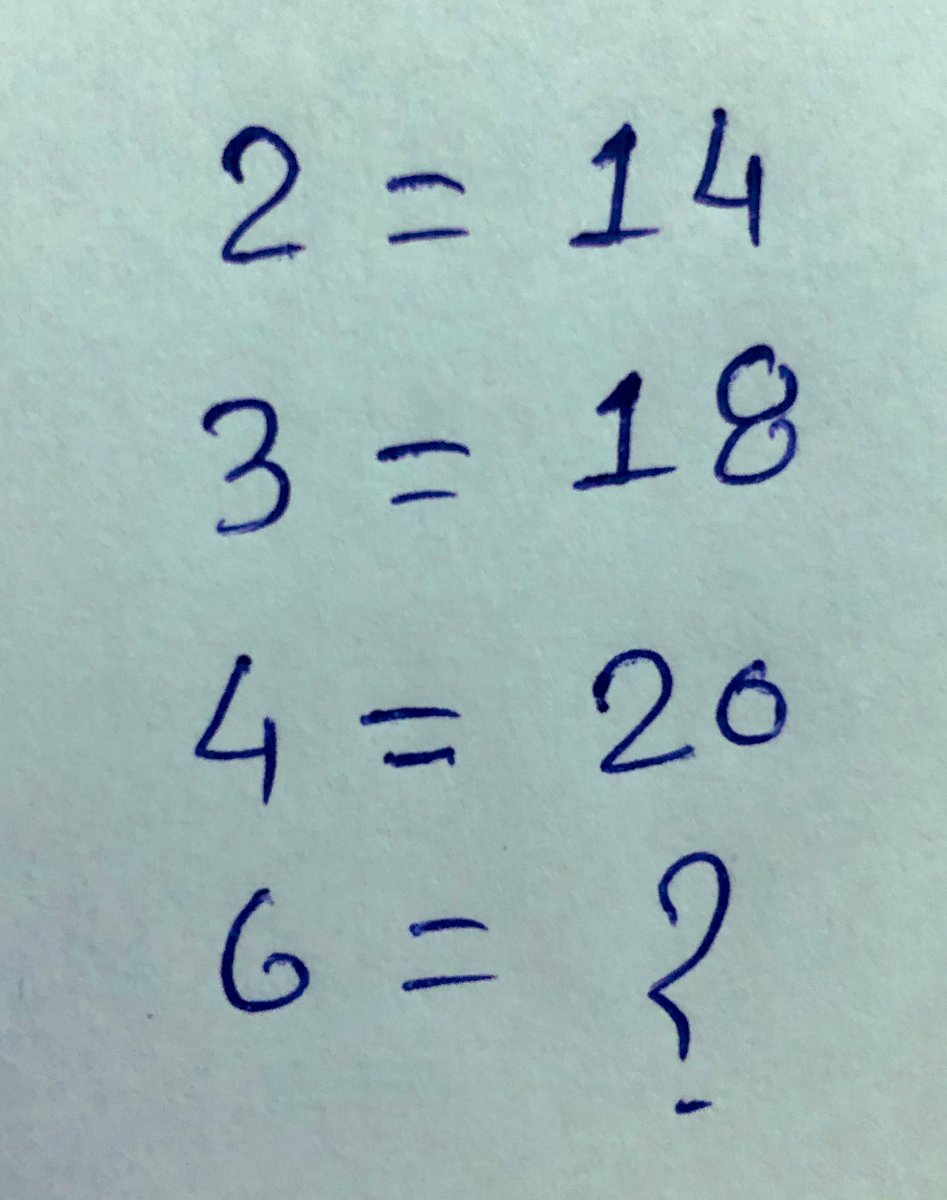 2 = 14
3 = 18
4 = 20
6 = ?